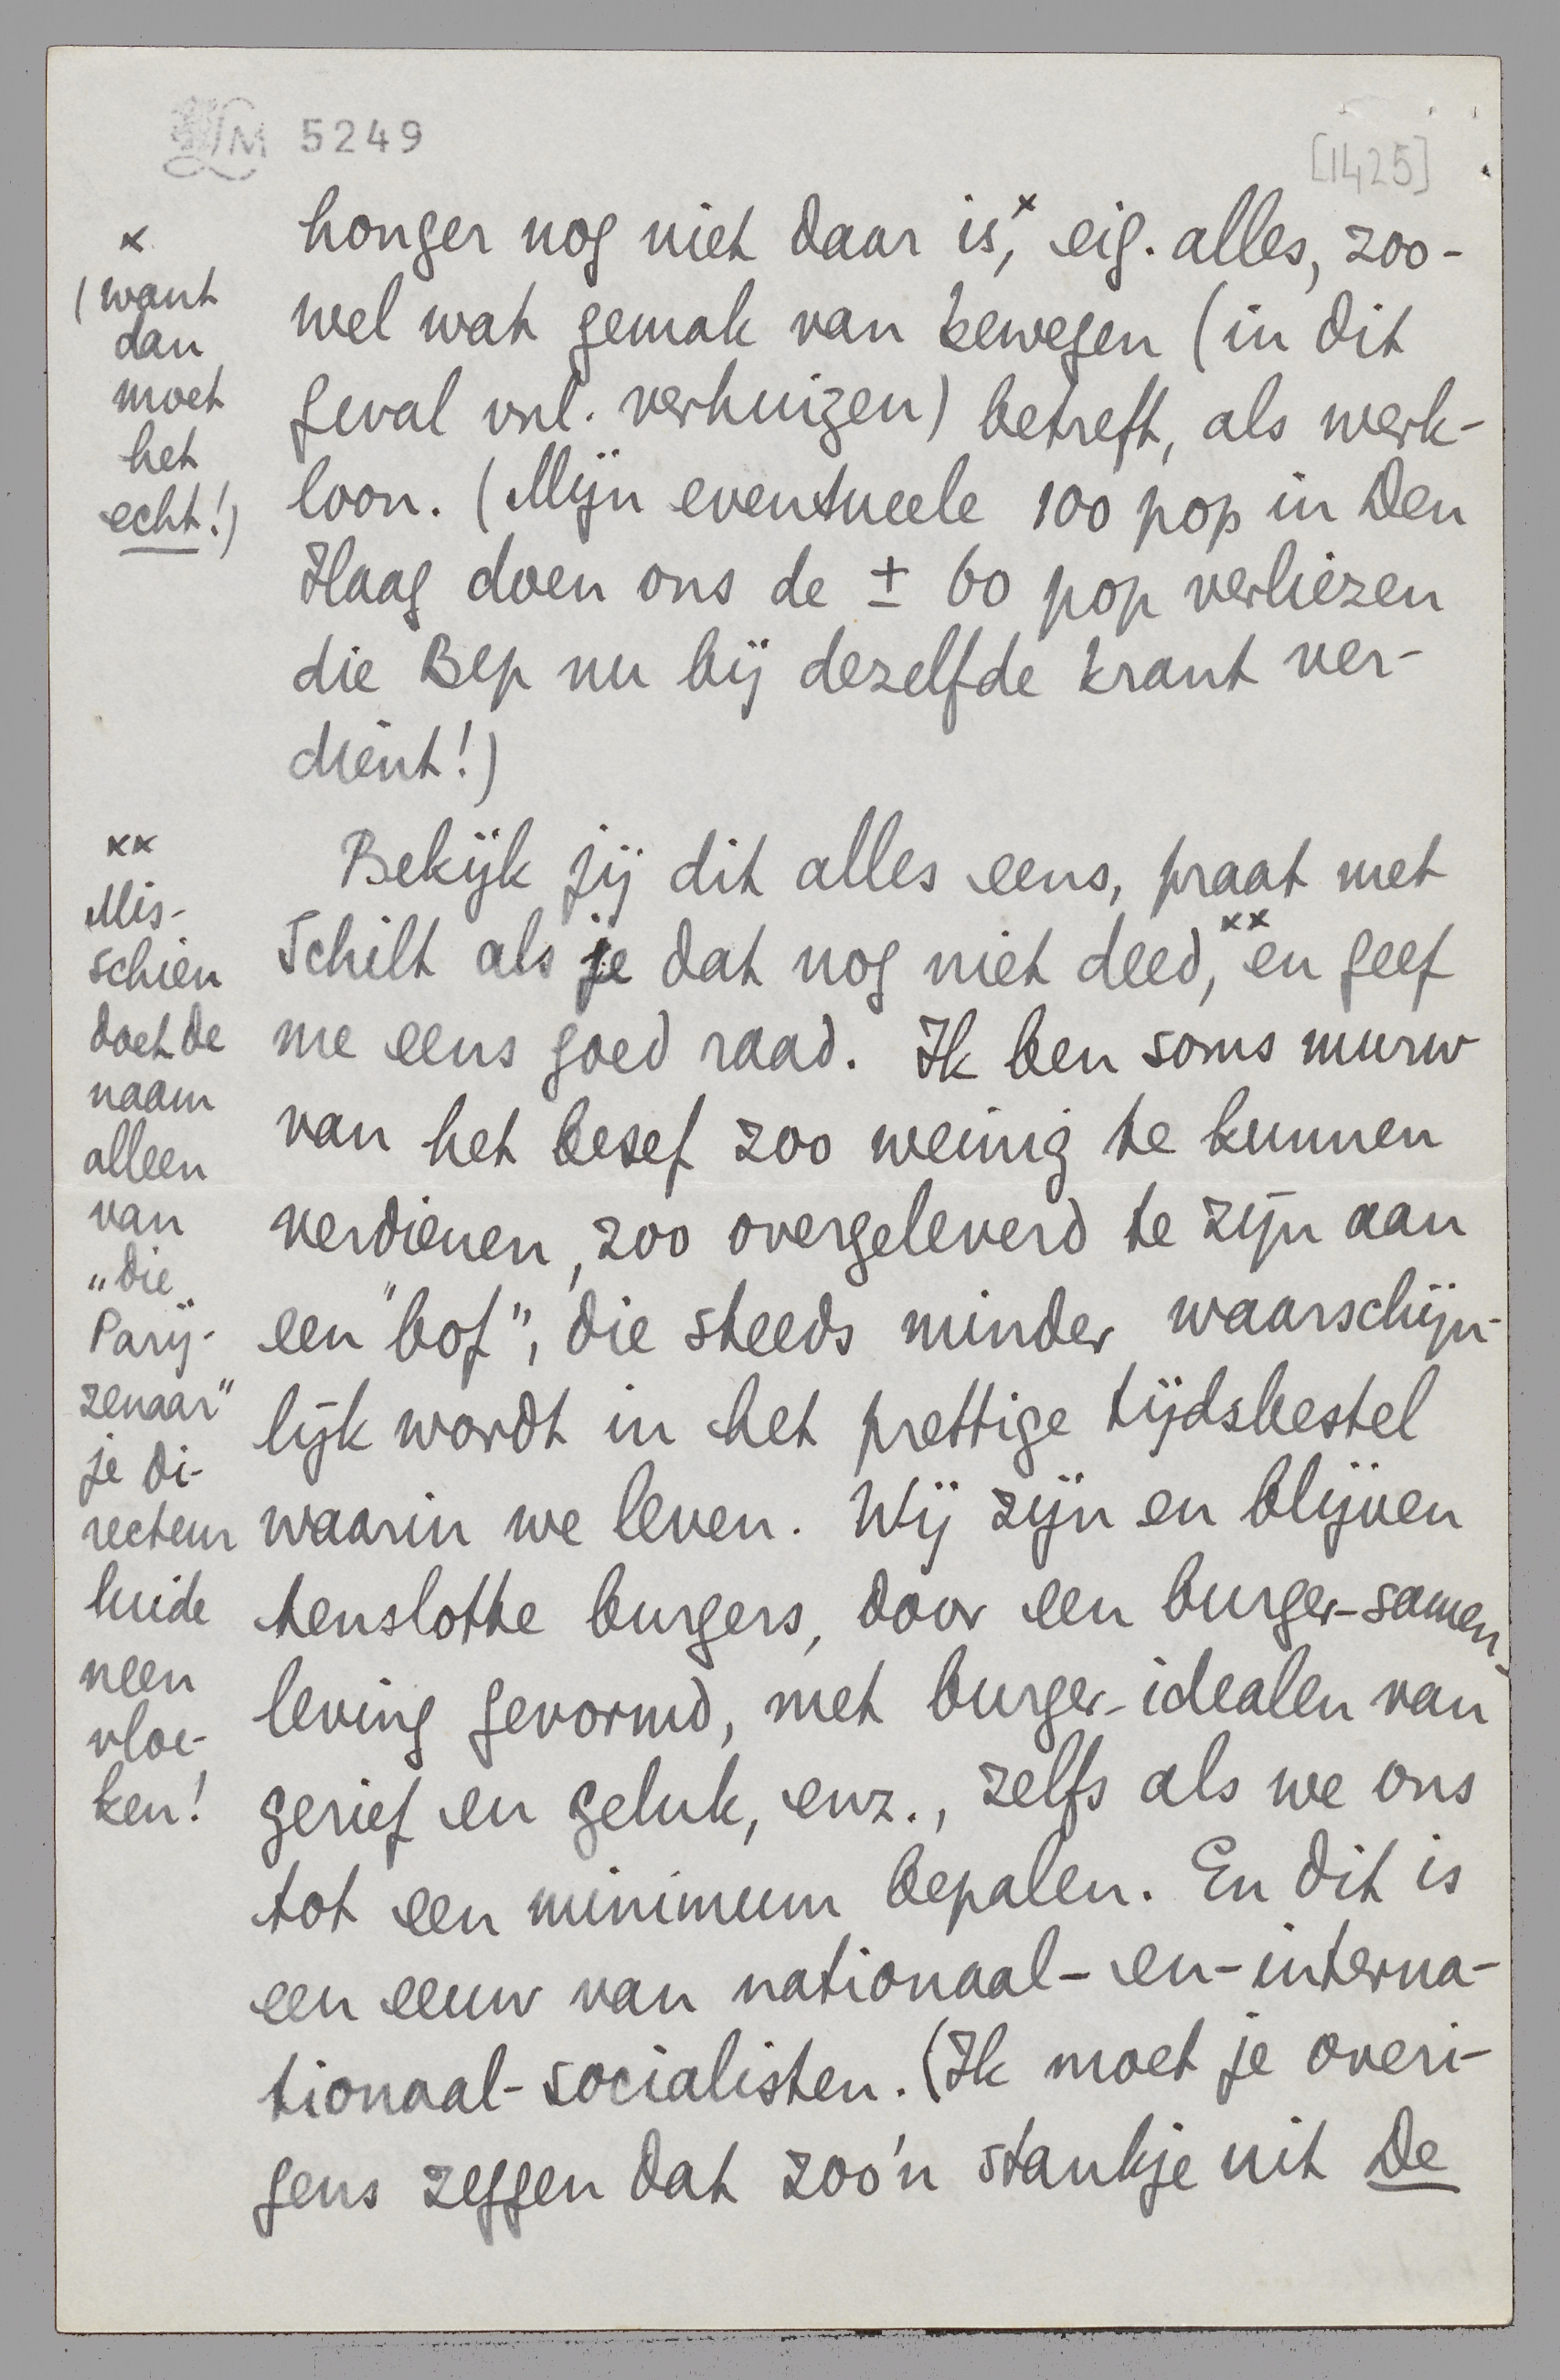 LM 5249
[1425]
honger nog niet daar is,× eig. alles, zoo-
wel wat gemak van bewegen (in dit
geval vnl. verhuizen) betreft, als werk-
loon. (Mijn eventueele 100 pop in Den
Haag doen ons de ± 60 pop verliezen
die Bep nu bij dezelfde krant ver-
dient!)
Bekijk jij dit alles eens, praat met
Schilt als je dat nog niet deed,×× en geef
me eens goed raad. Ik ben soms murw
van het besef zoo weinig te kunnen
verdienen, zoo overgeleverd te zijn aan
een "bof", die steeds minder waarschijn-
lijk wordt in het prettige tijdsbestel
waarin we leven. Wij zijn en blijven
tenslotte burgers, door een burger-samen-
leving gevormd, met burger-idealen van
gerief en geluk, enz., zelfs als we ons
tot een minimum bepalen. En dit is
een eeuw van nationaal-en-interna-
tionaal-socialisten. (Ik moet je overi-
gens zeggen dat zoo'n stankje uit De
×
(want
dan
moet
het
echt!)
××
Mis-
schien
doet de
naam
alleen
van
„die
Parij-
zenaar"
je di-
recteur
luide
neen
vloe-
ken!